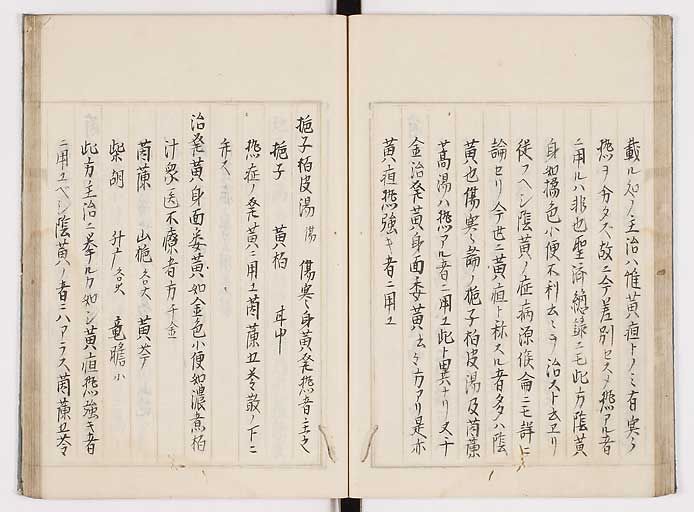 載ル処ノ主治ハ惟黄疸トノミ有寒ト
熱ヲ分タス故ニ今差別セス〆熱アル者
ニ用ルハ非也聖済總録ニモ此方陰黄
身如橘色小便不利云々ヲ治スト云ヱリ
従フヘシ陰黄ノ症病源候侖ニモ詳ニ
論セリ今世ニ黄疸ト称スル者多クハ陰
黄也傷寒論ノ梔子柏皮湯及茵蔯
蒿湯ハ熱アル者ニ用ユ此ト異ナリ又千
金治発黄身面委黄云々方アリ是亦
黄疸熱強キ者ニ用ユ
梔子柏皮湯 傷寒身黄発熱者主之
梔子 黄柏 甘中
熱症ノ発黄ニ用ユ茵蔯五苓散ノ下ニ
弁ス
治発黄身面委黄如金色小便如濃煮柏
汁衆医不療者方千金
茵蔯 山梔各大 黄芩
柴胡 升广各大 竜膽小
此方主治ニ挙ルカ如シ黄疸熱強キ者
ニ用ユベシ陰黄ノ者ニハアラス茵蔯五苓